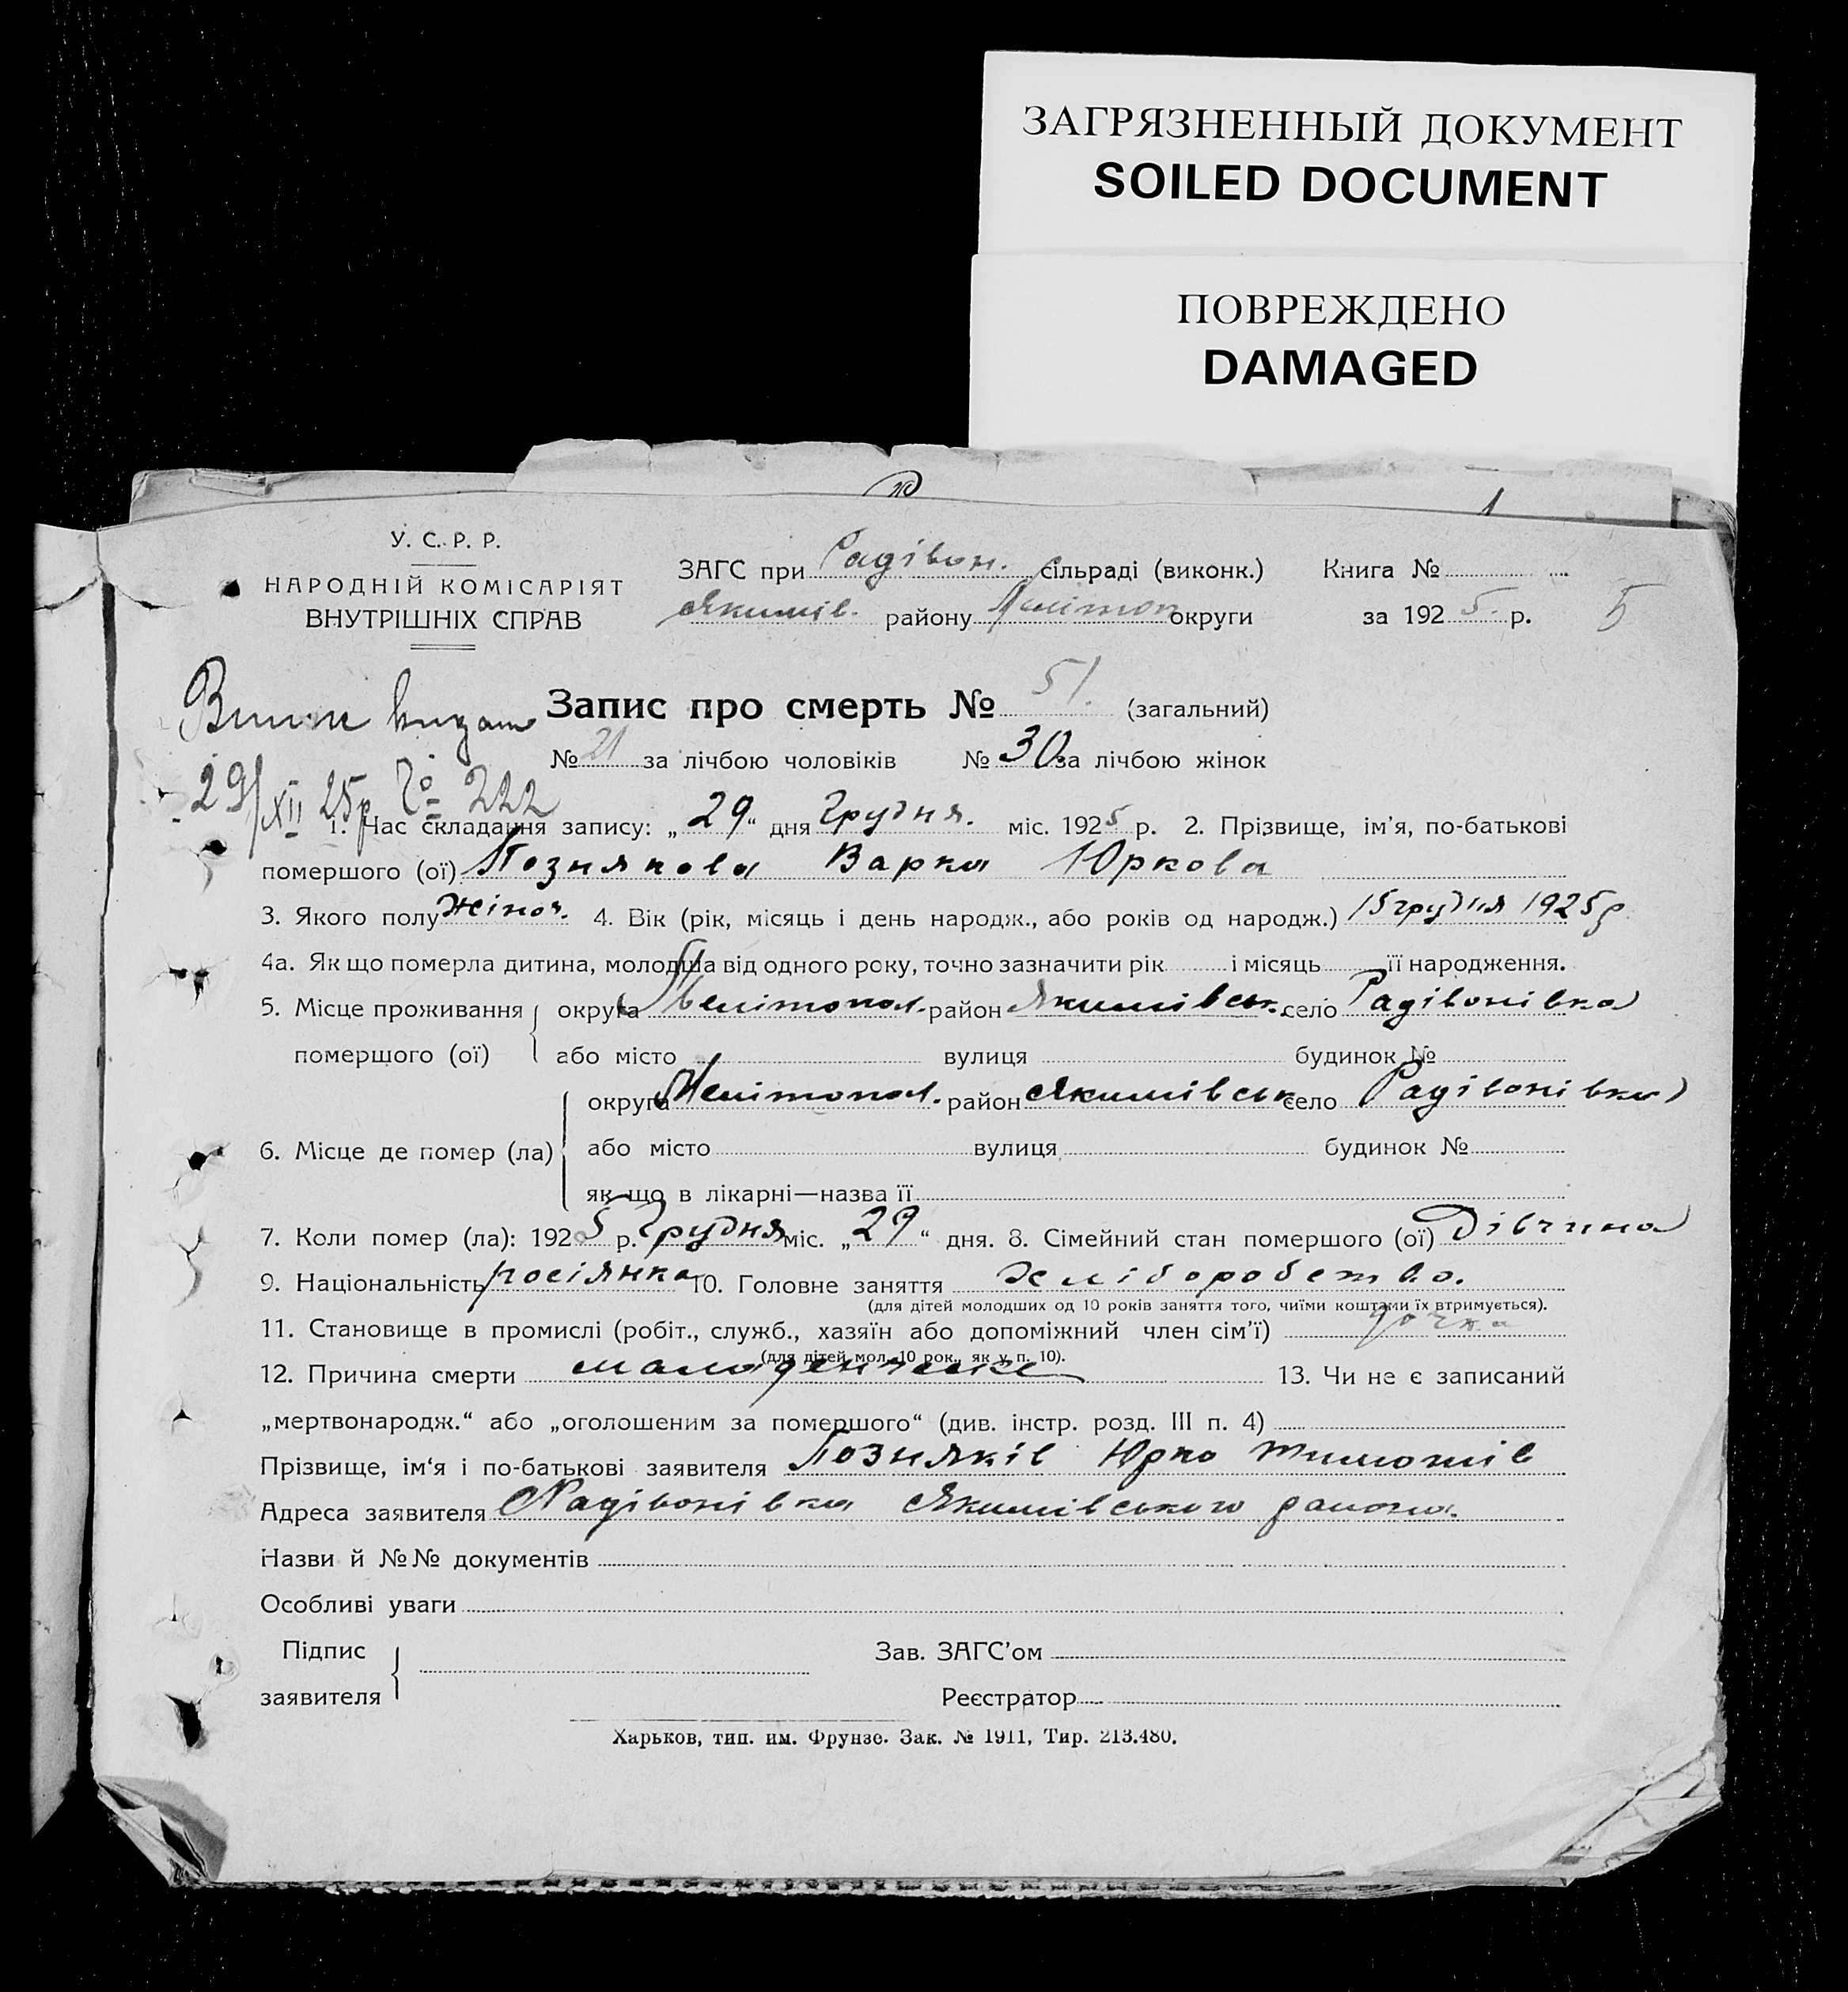 ЗАГРЯЗНЕННЫЙ ДОКУМЕНТ
SOILED DOCUMENT
ПОВРЕЖДЕНО
DAMAGED
У. С. Р. Р.
НАРОДНІЙ КОМІСАРІЯТ
ВНУТРІШНІХ СПРАВ
ЗАГС при Радівон. сільраді (виконк.) Книга №
Якимів. району Мелітоп округи за 1925 р. 5
Запис про смерть № 51. (загальний)
Видано
№ 21 за лічбою чоловіків № 30 за лічбою жінок
29/XII 25р № 222
1. Час складання запису: „29“ дня Грудня. міс. 1925 р. 2. Прізвище, ім’я, по-батькові
помершого (ої) Познякова Варка Юркова
3. Якого полу Жіноч. 4. Вік (рік, місяць і день народж., або років од народж.) 15 грудня 1925р
4а. Як що померла дитина, молодша від одного року, точно зазначити рік і місяць її народження.
5. Місце проживання округа Мелітопол. район Якимівськ. село Радівонівка
помершого (ої) або місто вулиця будинок №
округа Мелітопол. район Якимівськ село Радівонівка
6. Місце де помер (ла) або місто вулиця будинок №
як що в лікарні—назва її
7. Коли помер (ла): 1925 р. Грудня міс. „29“ дня. 8. Сімейний стан помершого (ої) Дівчина
9. Національність росіянка 10. Головне заняття хліборобство.
(для дітей молодших од 10 років заняття того, чиїми коштами їх втримується).
11. Становище в промислі (робіт., служб., хазяїн або допоміжний член сім’ї) дочка
(для дітей мол. 10 рок., як у п. 10).
12. Причина смерти 13. Чи не є записаний
„мертвонародж.“ або „оголошеним за помершого“ (див. інстр. розд. III п. 4)
Прізвище, ім‘я і по-батькові заявителя Позняків Юрко Тимошів
Адреса заявителя Радівонівка Якимівського району.
Назви й №№ документів
Особливі уваги
Підпис
заявителя
Зав. ЗАГС’ом
Реєстратор
Харьков, тип. им. Фрунзе. Зак. № 1911, Тир. 213.480.